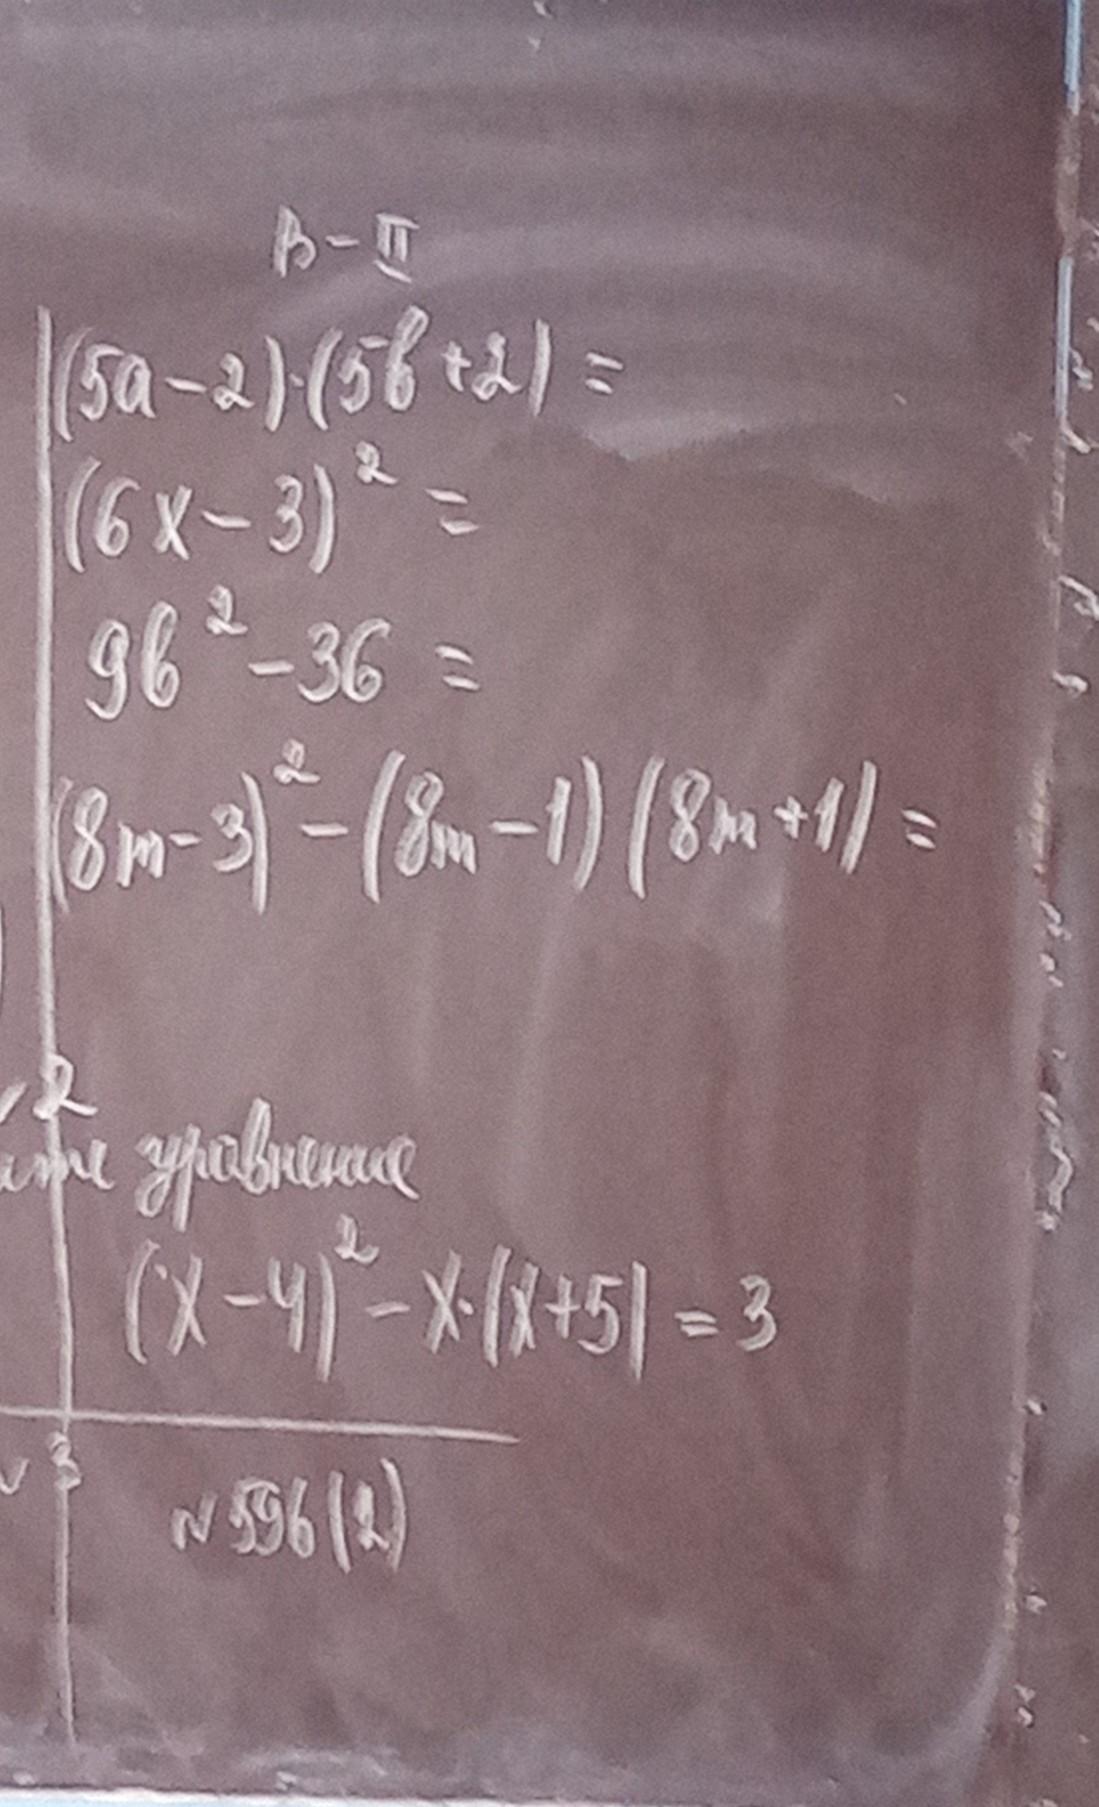 В-II
(5a-2)·(5b+2)=
(6x-3)² =
9b²-36 =
(8m-3)²-(8m-1)(8m+1)=
2
уравнение
(x-4)²-x·(x+5)=3
№3
№596(2)